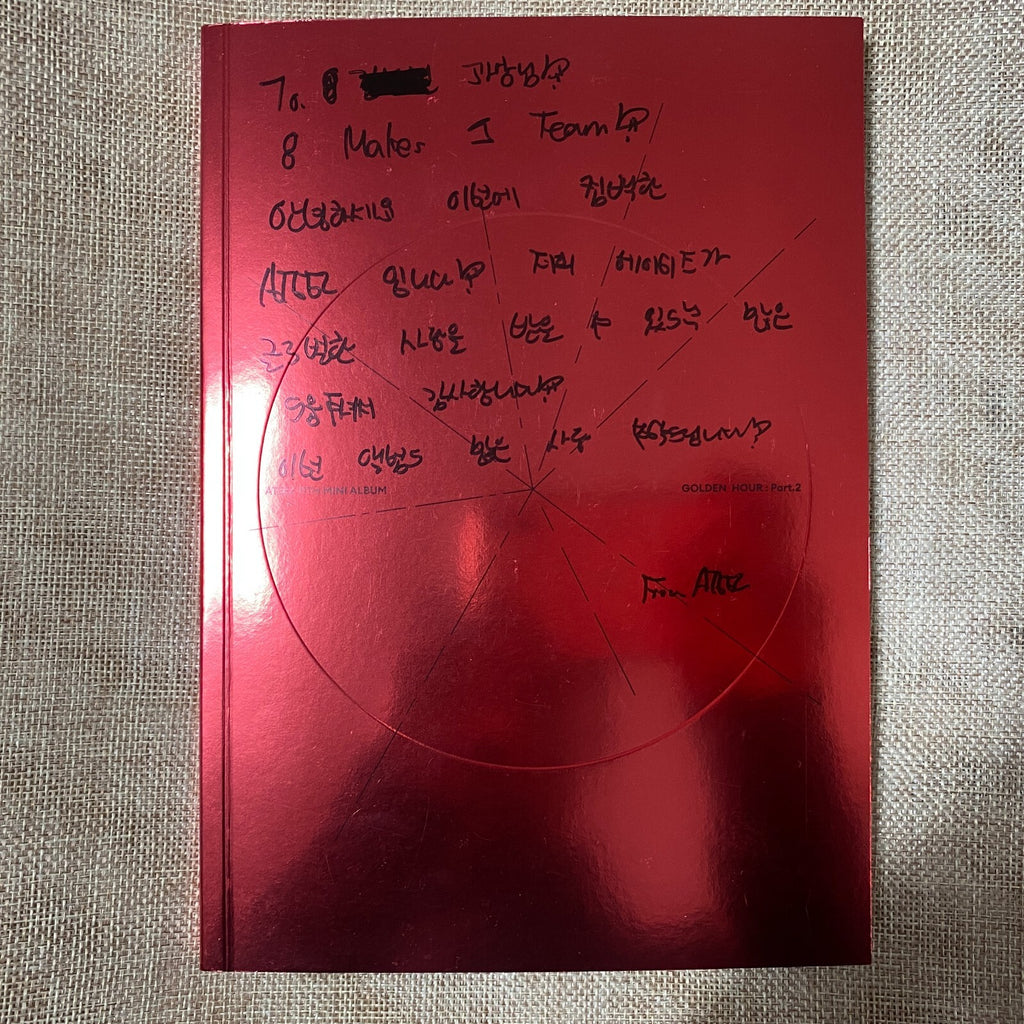 To. 과장님!
8 Makes 1 Team!
안녕하세요 이번에 컴백한
ATEEZ 입니다! 저희 에이티즈가
사랑을 받을 수 있도록 많은
도움주셔서 감사합니다!
이번 앨범도 많은 사랑 부탁드립니다!
MINI ALBUM
GOLDEN HOUR : Part.2
From ATEEZ